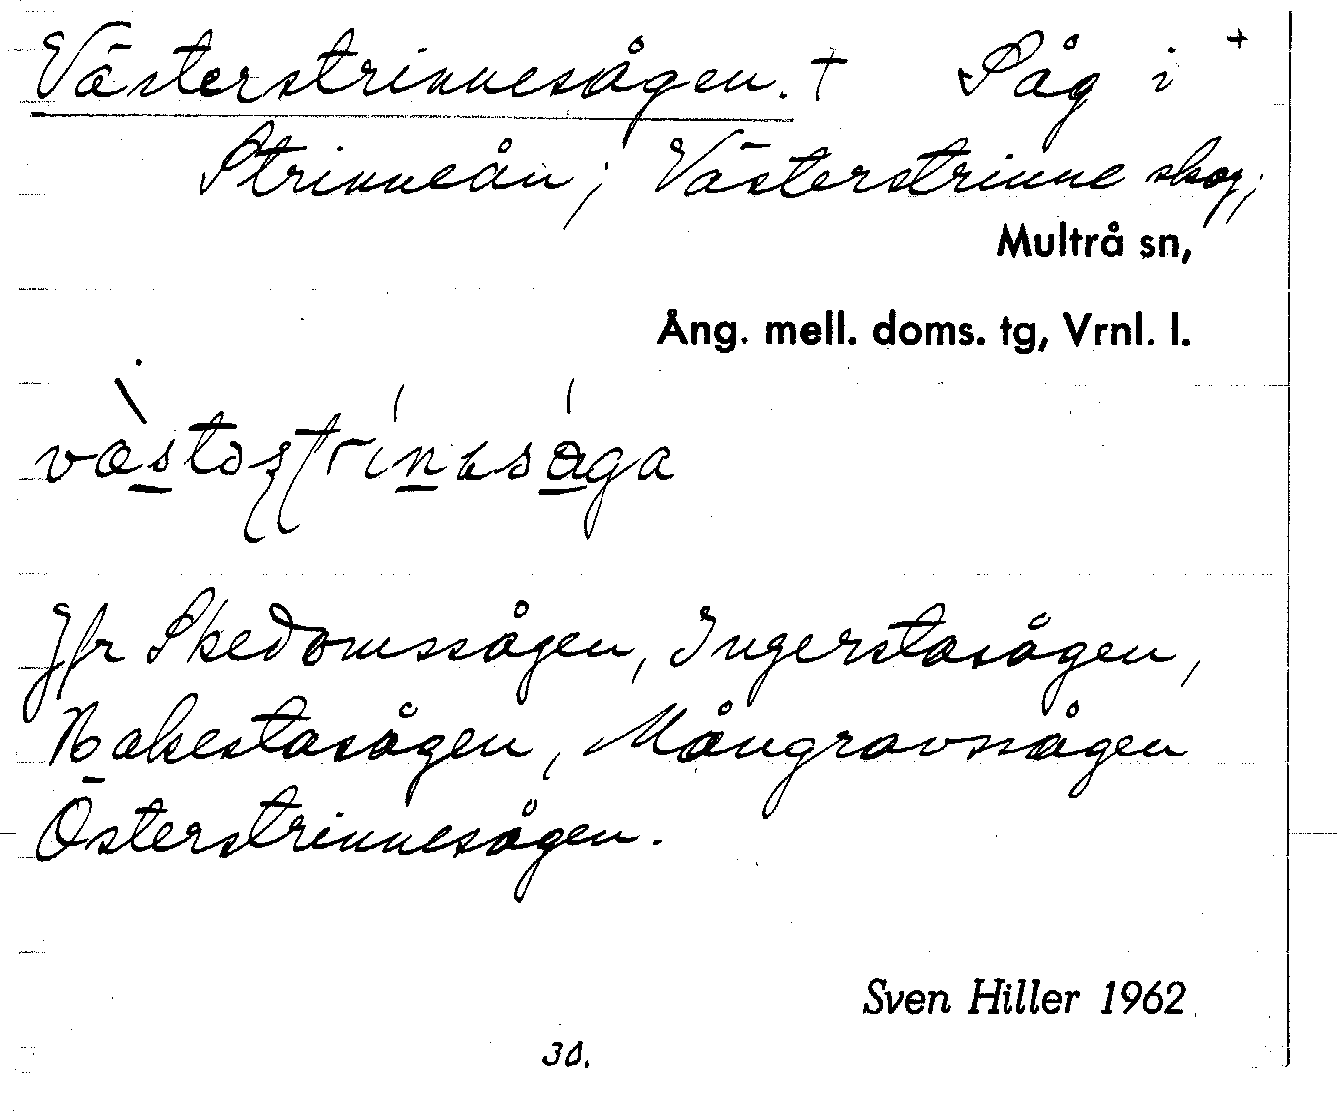 Västerstrinnesågen. + Såg i +
Strinneån; Västerstrinne skog,
Multrå sn,
Ång. mell. doms. tg, Vrnl. l.
Jfr Skedomssågen, Ingerstasågen,
Mångravssågen
Österstrinnesågen.
Sven Hiller 1962
30.